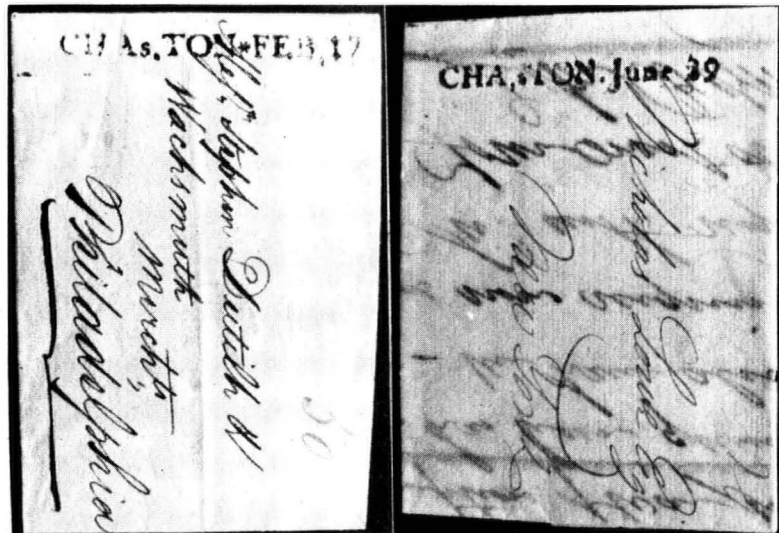 CHAs.TON*FEB.17
Messrs. Stephen Dutilh &
Wachsmuth
Merchts,
Philadelphia
50
CHA,sTON. June 29
Nicholas Low Esq
New York